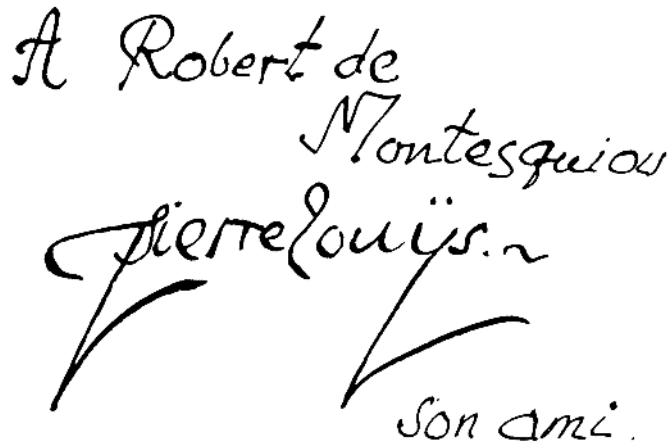 A Robert de
Montesquiou
Pierre Louÿs.~
son ami.